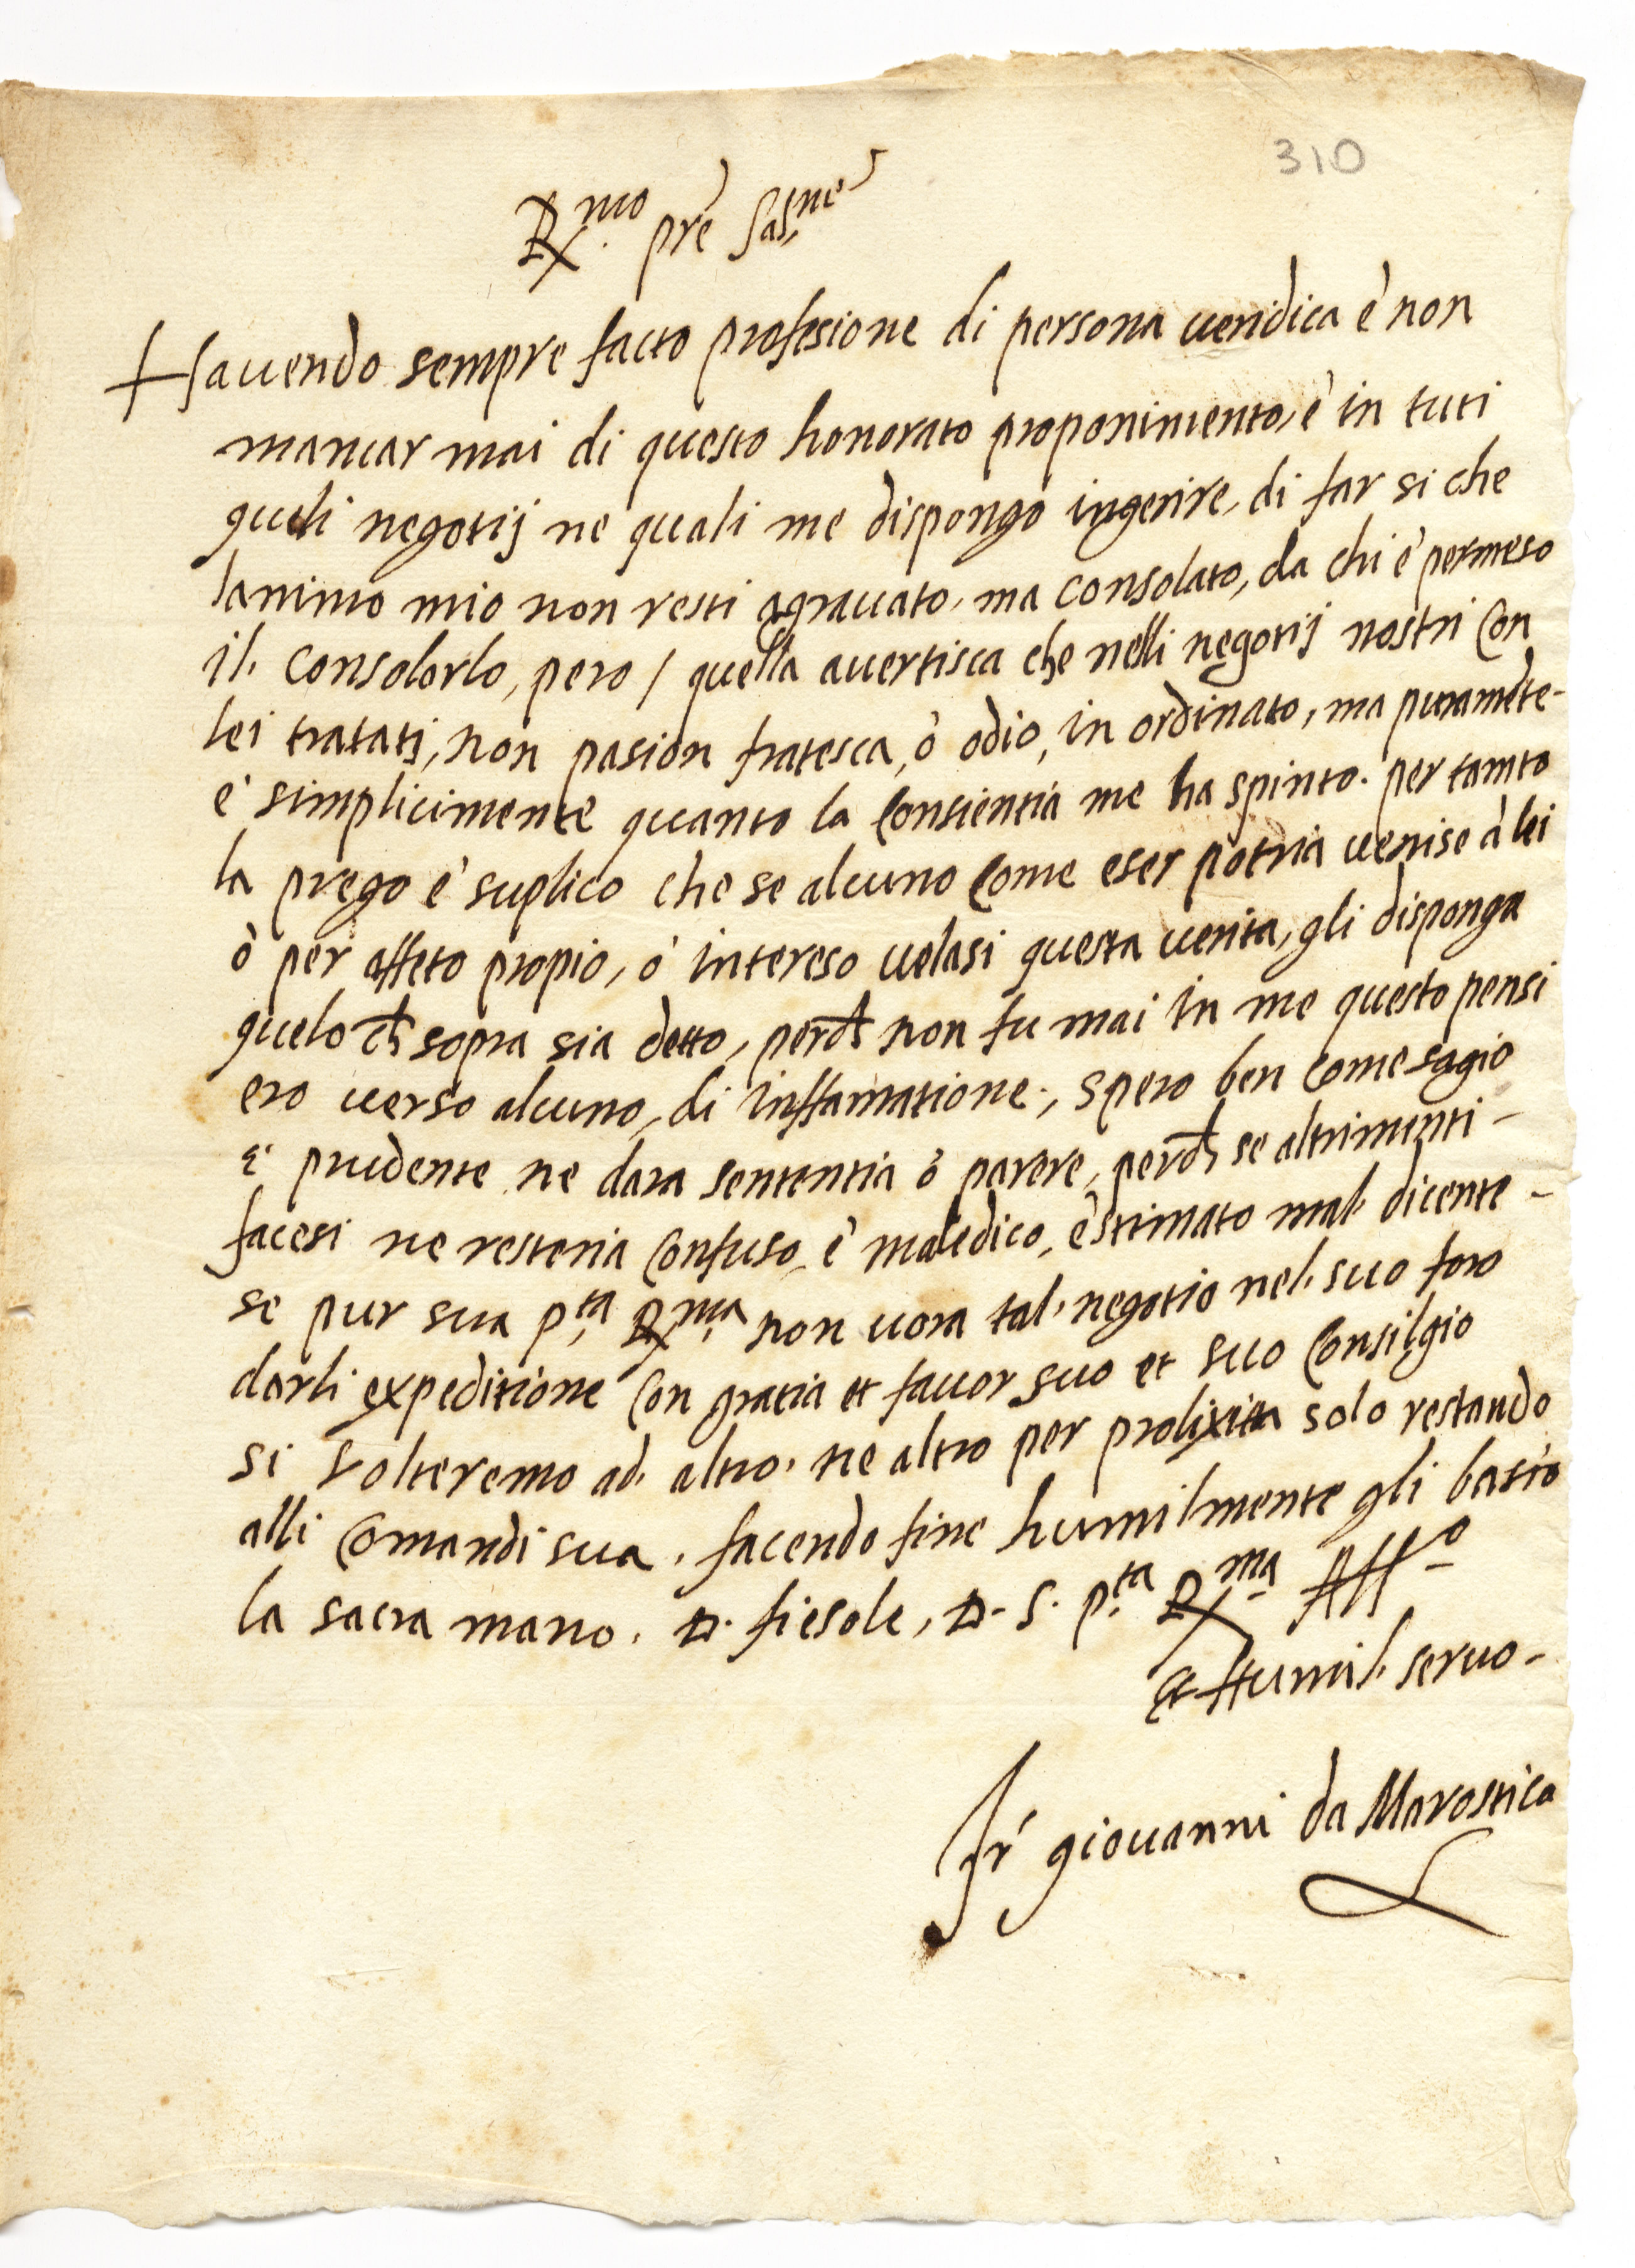 310
R.mo pre Sal.ne
Havendo sempre facto profesione di persona veridica è non
mancar mai di questo honorato proponimento, è in tuti
gueli negotij ne quali me dispongo ingerire, di far si che
lanimo mio non resti agravato, ma consolato, da chi è permeso
il. consolorlo, pero / quella avertisca che nelli negotij nostri con
lei tratatj, non pasion fratesca, ò odio, in ordinato, ma puramẽte-
e' simplicimente quanto la consientia me ha spinto. per tamto
la prego e' suplico che se alcuno come eser potria venise à lei
ò per affeto propio, ò intereso velasi questa verita, gli disponga
quelo ch sopra sia detto, perch non fu mai in me questo pensi
ero verso alcuno, di inffamatione., spero ben come sagio
e' prudente ne dara sententia ò parere, perch se altrimenti -
facesi ne resteria confuso, è maledico, è stimato mal. dicente -
se pur sua p.ta R.ma non vora tal. negotio nel. suo foro
darli expeditione con gratia et favor suo et suo consilgio
si volteremo ad. altro. ne altro per prolixita solo restando
alli comandi sua. facendo fine humilmente gli bascio
la sacra mano. D. fiesole, D. S. p.ta R.ma Aff.o
et Humil. servo-
Fr giovanni da Marostica